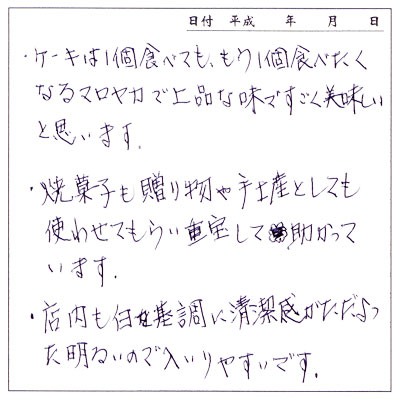 日付 平成 年 月 日
・ケーキは1個食べても、もう1個食べたく
なるマロヤカで上品な味ですごく美味しい
と思います。
・焼菓子も贈り物や手土産としても
使わせてもらい重宝して助かって
います。
・店内も白を基調に清潔感がただよっ
た明るいので入いりやすいです。